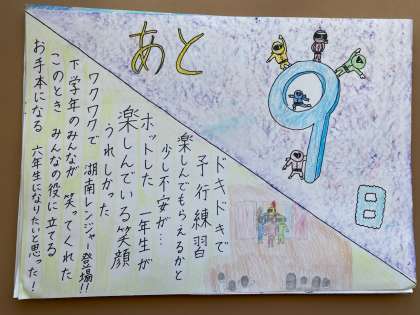 あと
9
日
ドキドキで
予行練習
楽しんでもらえるかと
少し不安が…
ホットした 一年生が
楽しんでいる笑顔
うれしかった
ワクワクで 湖南レンジャー登場!!
下学年のみんなが 笑ってくれた
このとき みんなの役に立てる
お手本になる 六年生になりたいと思った!